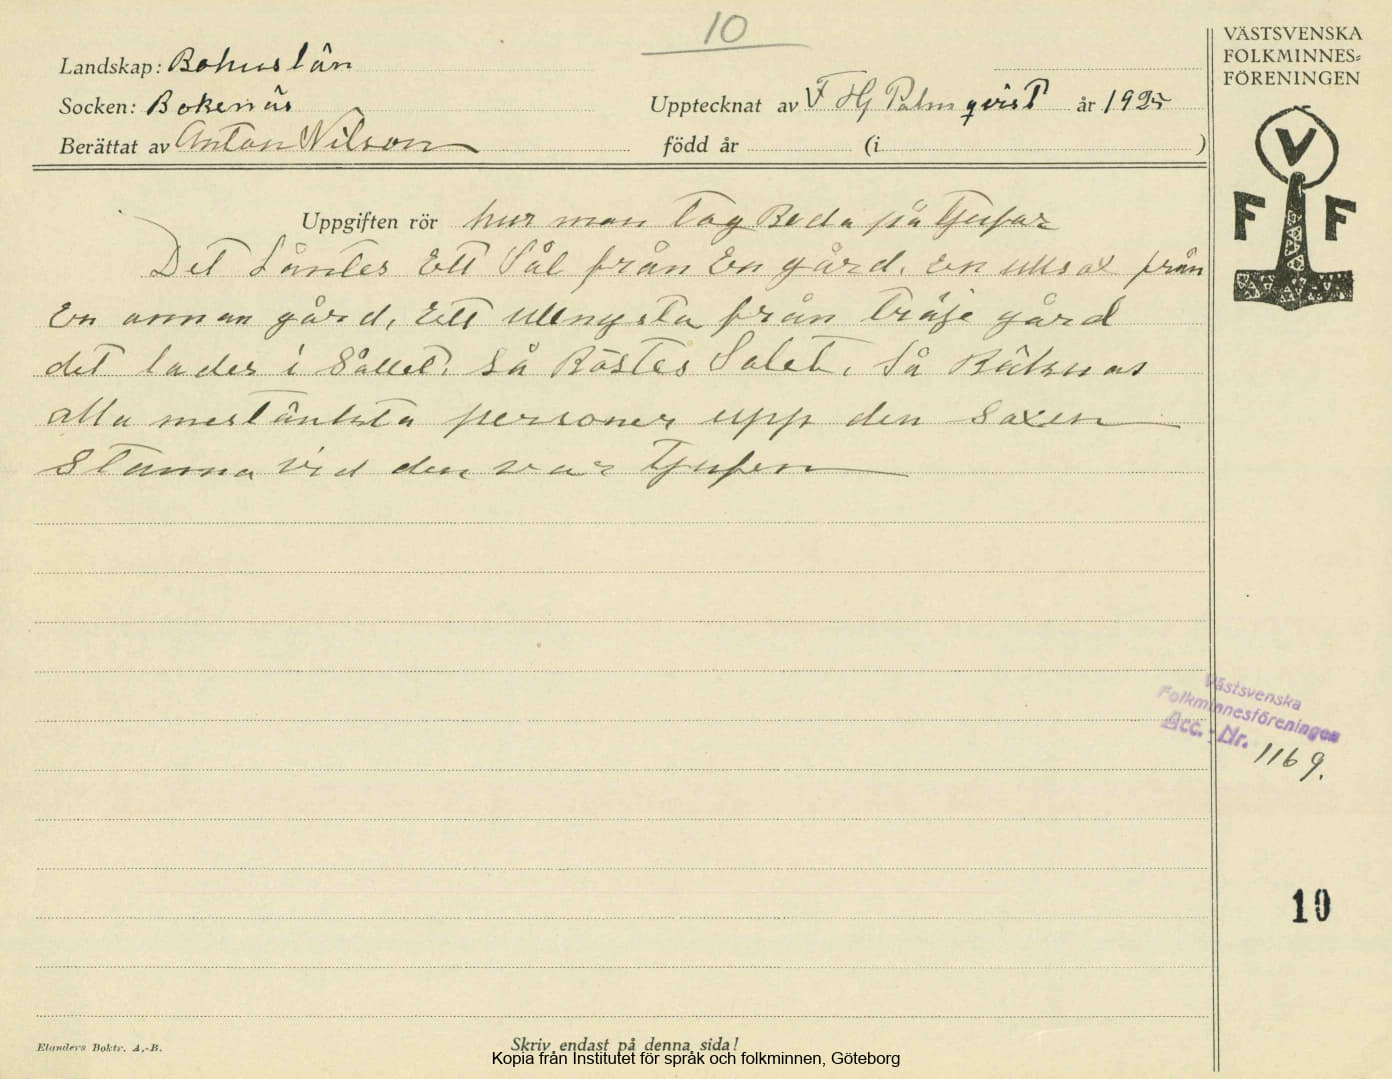 10
VÄSTSVENSKA
FOLKMINNES=
FÖRENINGEN
Landskap: Bohuslän
Socken: Bokenäs
Upptecknat av F Hj Palmqvist år 1925
Berättat av Anton Nilson
född år (i )
V
F F
Uppgiften rör hur man tog Reda på tjufvar
Det Låntes Ett Sål från En gård, En ullsax från
En annan gård, Ett Ullnysta från träje gård
det lades i Sållet, Så Röstes Solet, Så Räknas
alla mestänksta personer upp den Saxen
Stanna vid den var tjufven
Västsvenska
Folkminnesföreningen
Acc.-Nr. 1169.
10
Elanders Boktr. A.-B.
Skriv endast på denna sida!
Kopia från Institutet för språk och folkminnen, Göteborg